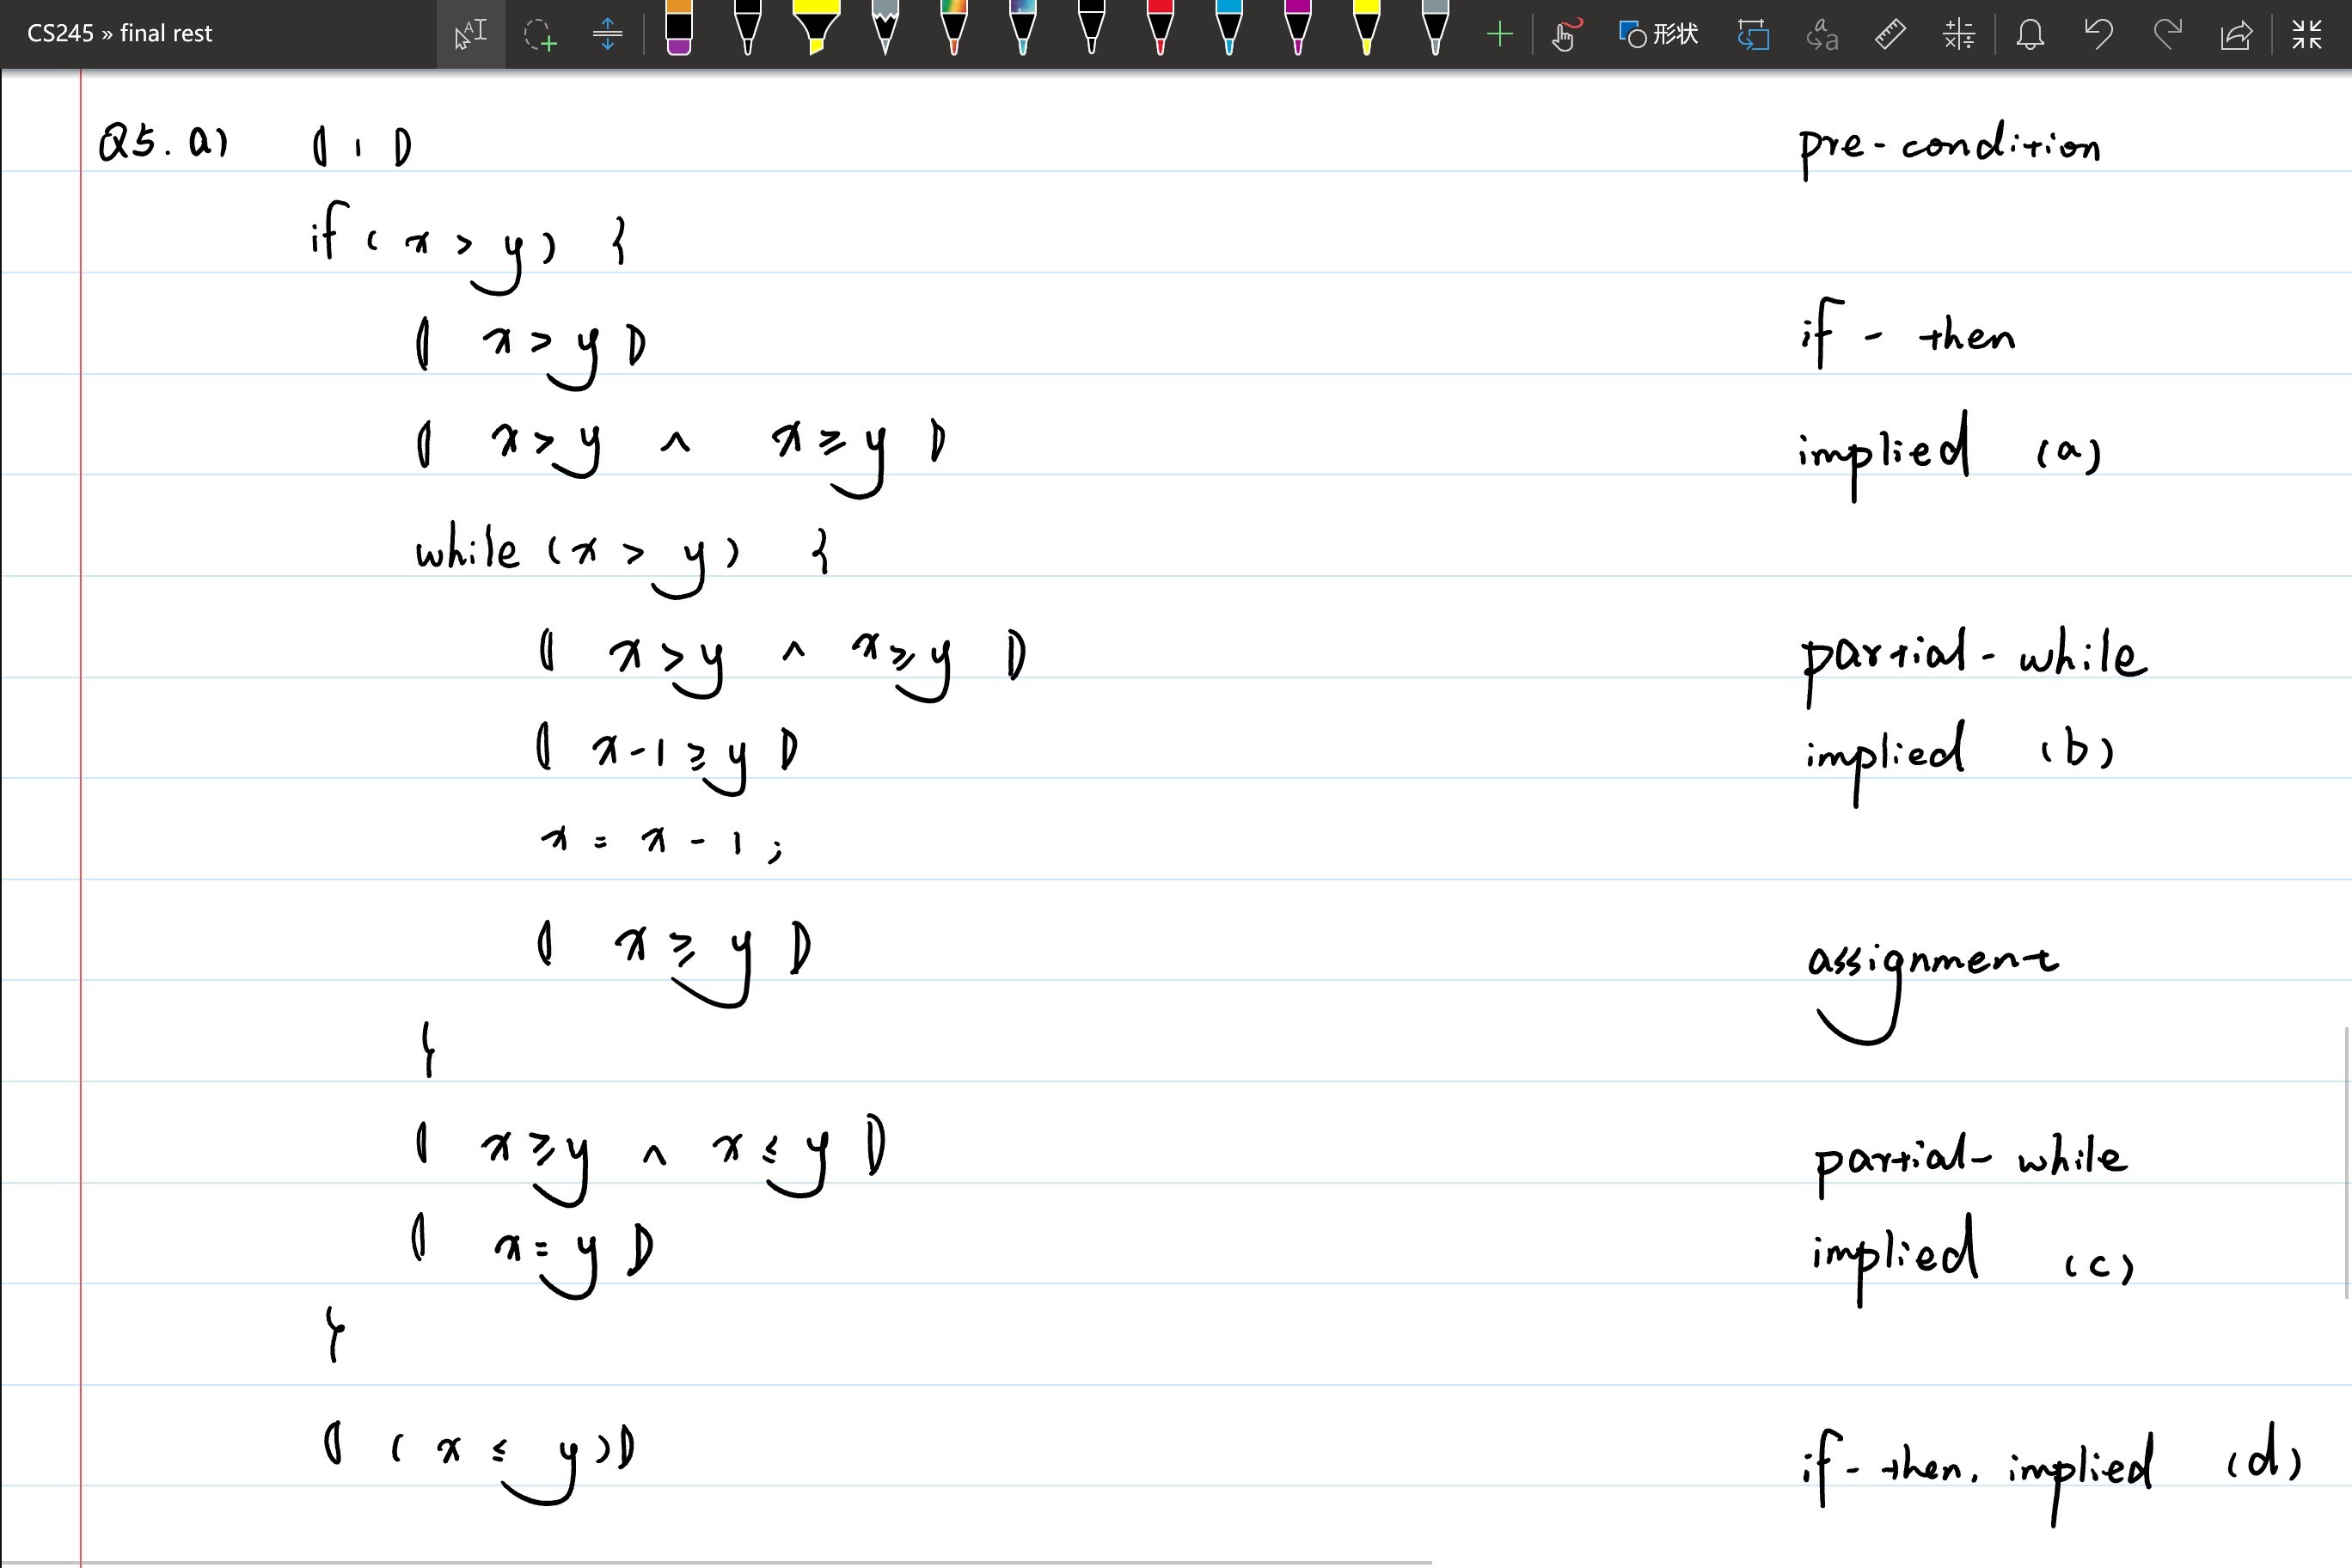 CS245 » final rest
形状
Q5. a) ⦇ 1 ⦈ pre-condition
if ( x > y ) {
⦇ x > y ⦈ if - then
⦇ x > y ∧ x ≥ y ⦈ implied (a)
while ( x > y ) {
⦇ x > y ∧ x ≥ y ⦈ partial - while
⦇ x - 1 ≥ y ⦈ implied (b)
x = x - 1 ;
⦇ x ≥ y ⦈ assignment
}
⦇ x ≥ y ∧ x ≤ y ⦈ partial - while
⦇ x = y ⦈ implied (c)
}
⦇ ( x ≤ y ) ⦈ if - then, implied (d)